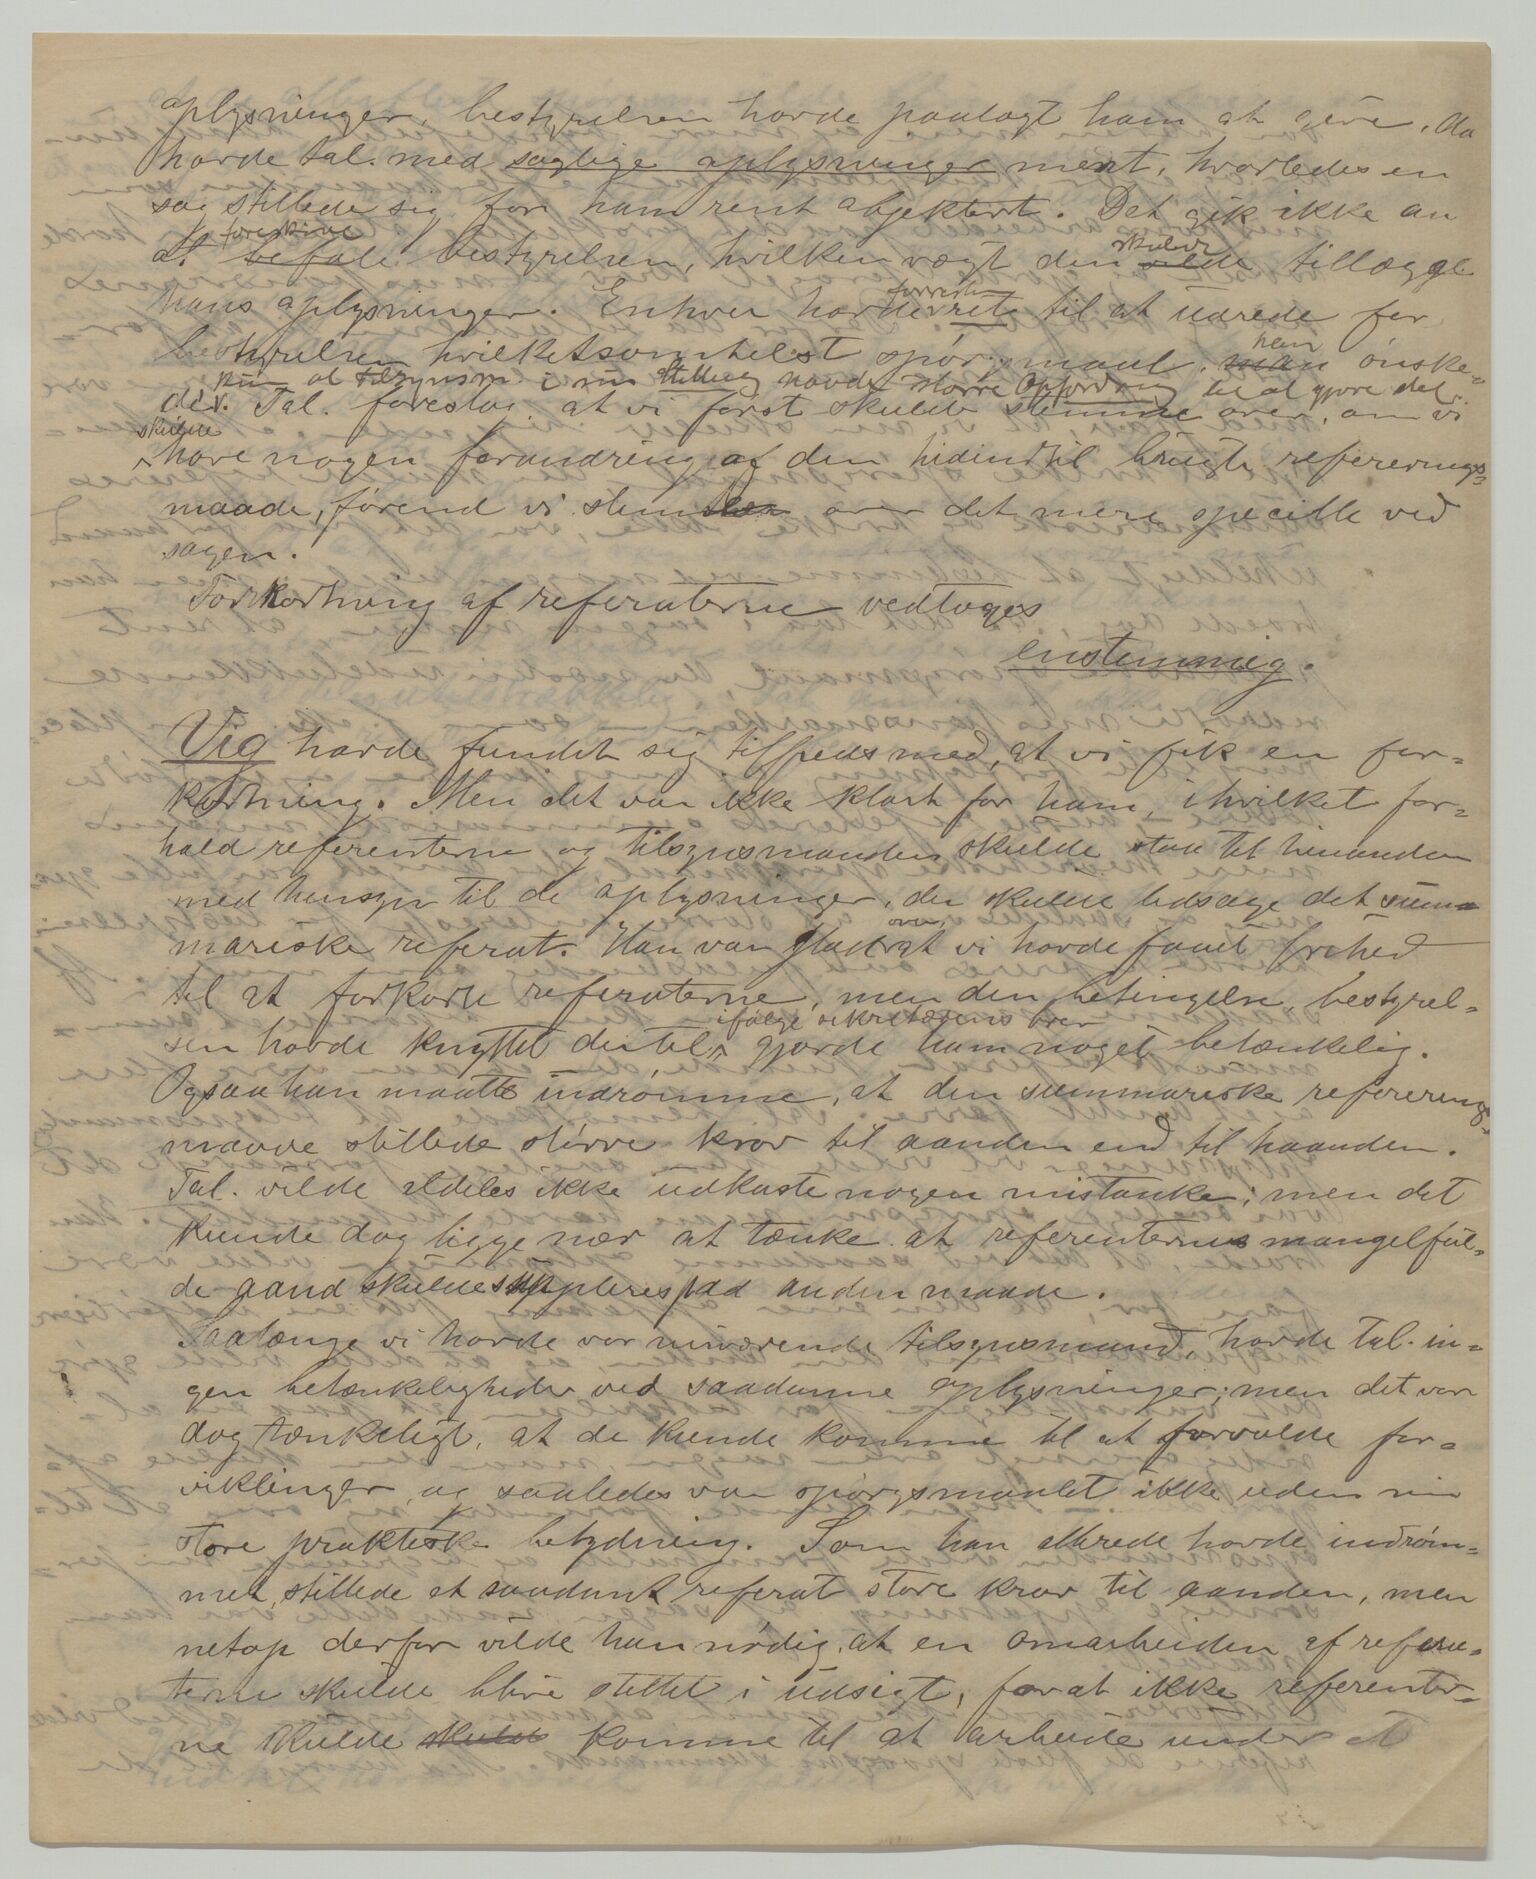 oplysninger, bestyrelsen havde paalagt ham at give, da
havde tal. med saglige oplysninger ment, hvorledes en
sag stillede sig for ham rent objektivt. Det gik ikke an
foreskrive skulde
at befale bestyrelsen, hvilken vægt den vilde tillægge
hans oplysninger. Enhver havde forresten ret til at udrede for
bestyrelsen hvilketsomhelst spørgsmaal, han man ønske-
kun at tilsynsm i sin stilling havde større opfordring til at gjøre det.
de. Tal. foreslog, at vi først skulde stemme over, om vi
skulde
have nogen forandring af den hidindtil brugte refererings-
maade, førend vi stemte over det mere specielle ved
sagen.
Forkortning af referaterne vedtoges
enstemmig.
Vig havde fundet sig tilfreds med, at vi fik en for-
kortning. Men det var ikke klart for ham, i hvilket for-
hold referenterne og tilsynsmanden skulde staa til hinanden
med hensyn til de oplysninger, der skulde ledsage det sum-
mariske referat. Han var glad over, at vi havde faaet frihed
til at forkorte referaterne, men den betingelse, bestyrel-
ifølge sekretærens brev
sen havde knyttet dertil, gjorde ham noget betænkelig.
Ogsaa han maatte indrømme, at den summariske refererings-
maade stillede større krav til aanden end til haanden.
Tal. vilde aldeles ikke udkaste nogen mistanke; men det
kunde dog ligge nær at tænke, at referenternes mangelful-
de aand skulde suppleres paa anden maade.
Saalænge vi havde vor nuværende tilsynsmand, havde tal. in-
gen betænkeligheder ved saadanne oplysninger; men det var
dog tænkeligt, at de kunde komme til at forvolde for-
viklinger, og saaledes var spørgsmaalet ikke uden sin
store praktiske betydning. Som han allerede havde indrøm-
met, stillede et saadant referat store krav til aanden, men
netop derfor vilde han nødig, at en omarbeiden af refera-
terne skulde blive stillet i udsigt, forat ikke referenter-
ne skulde skulde komme til at arbeide under et